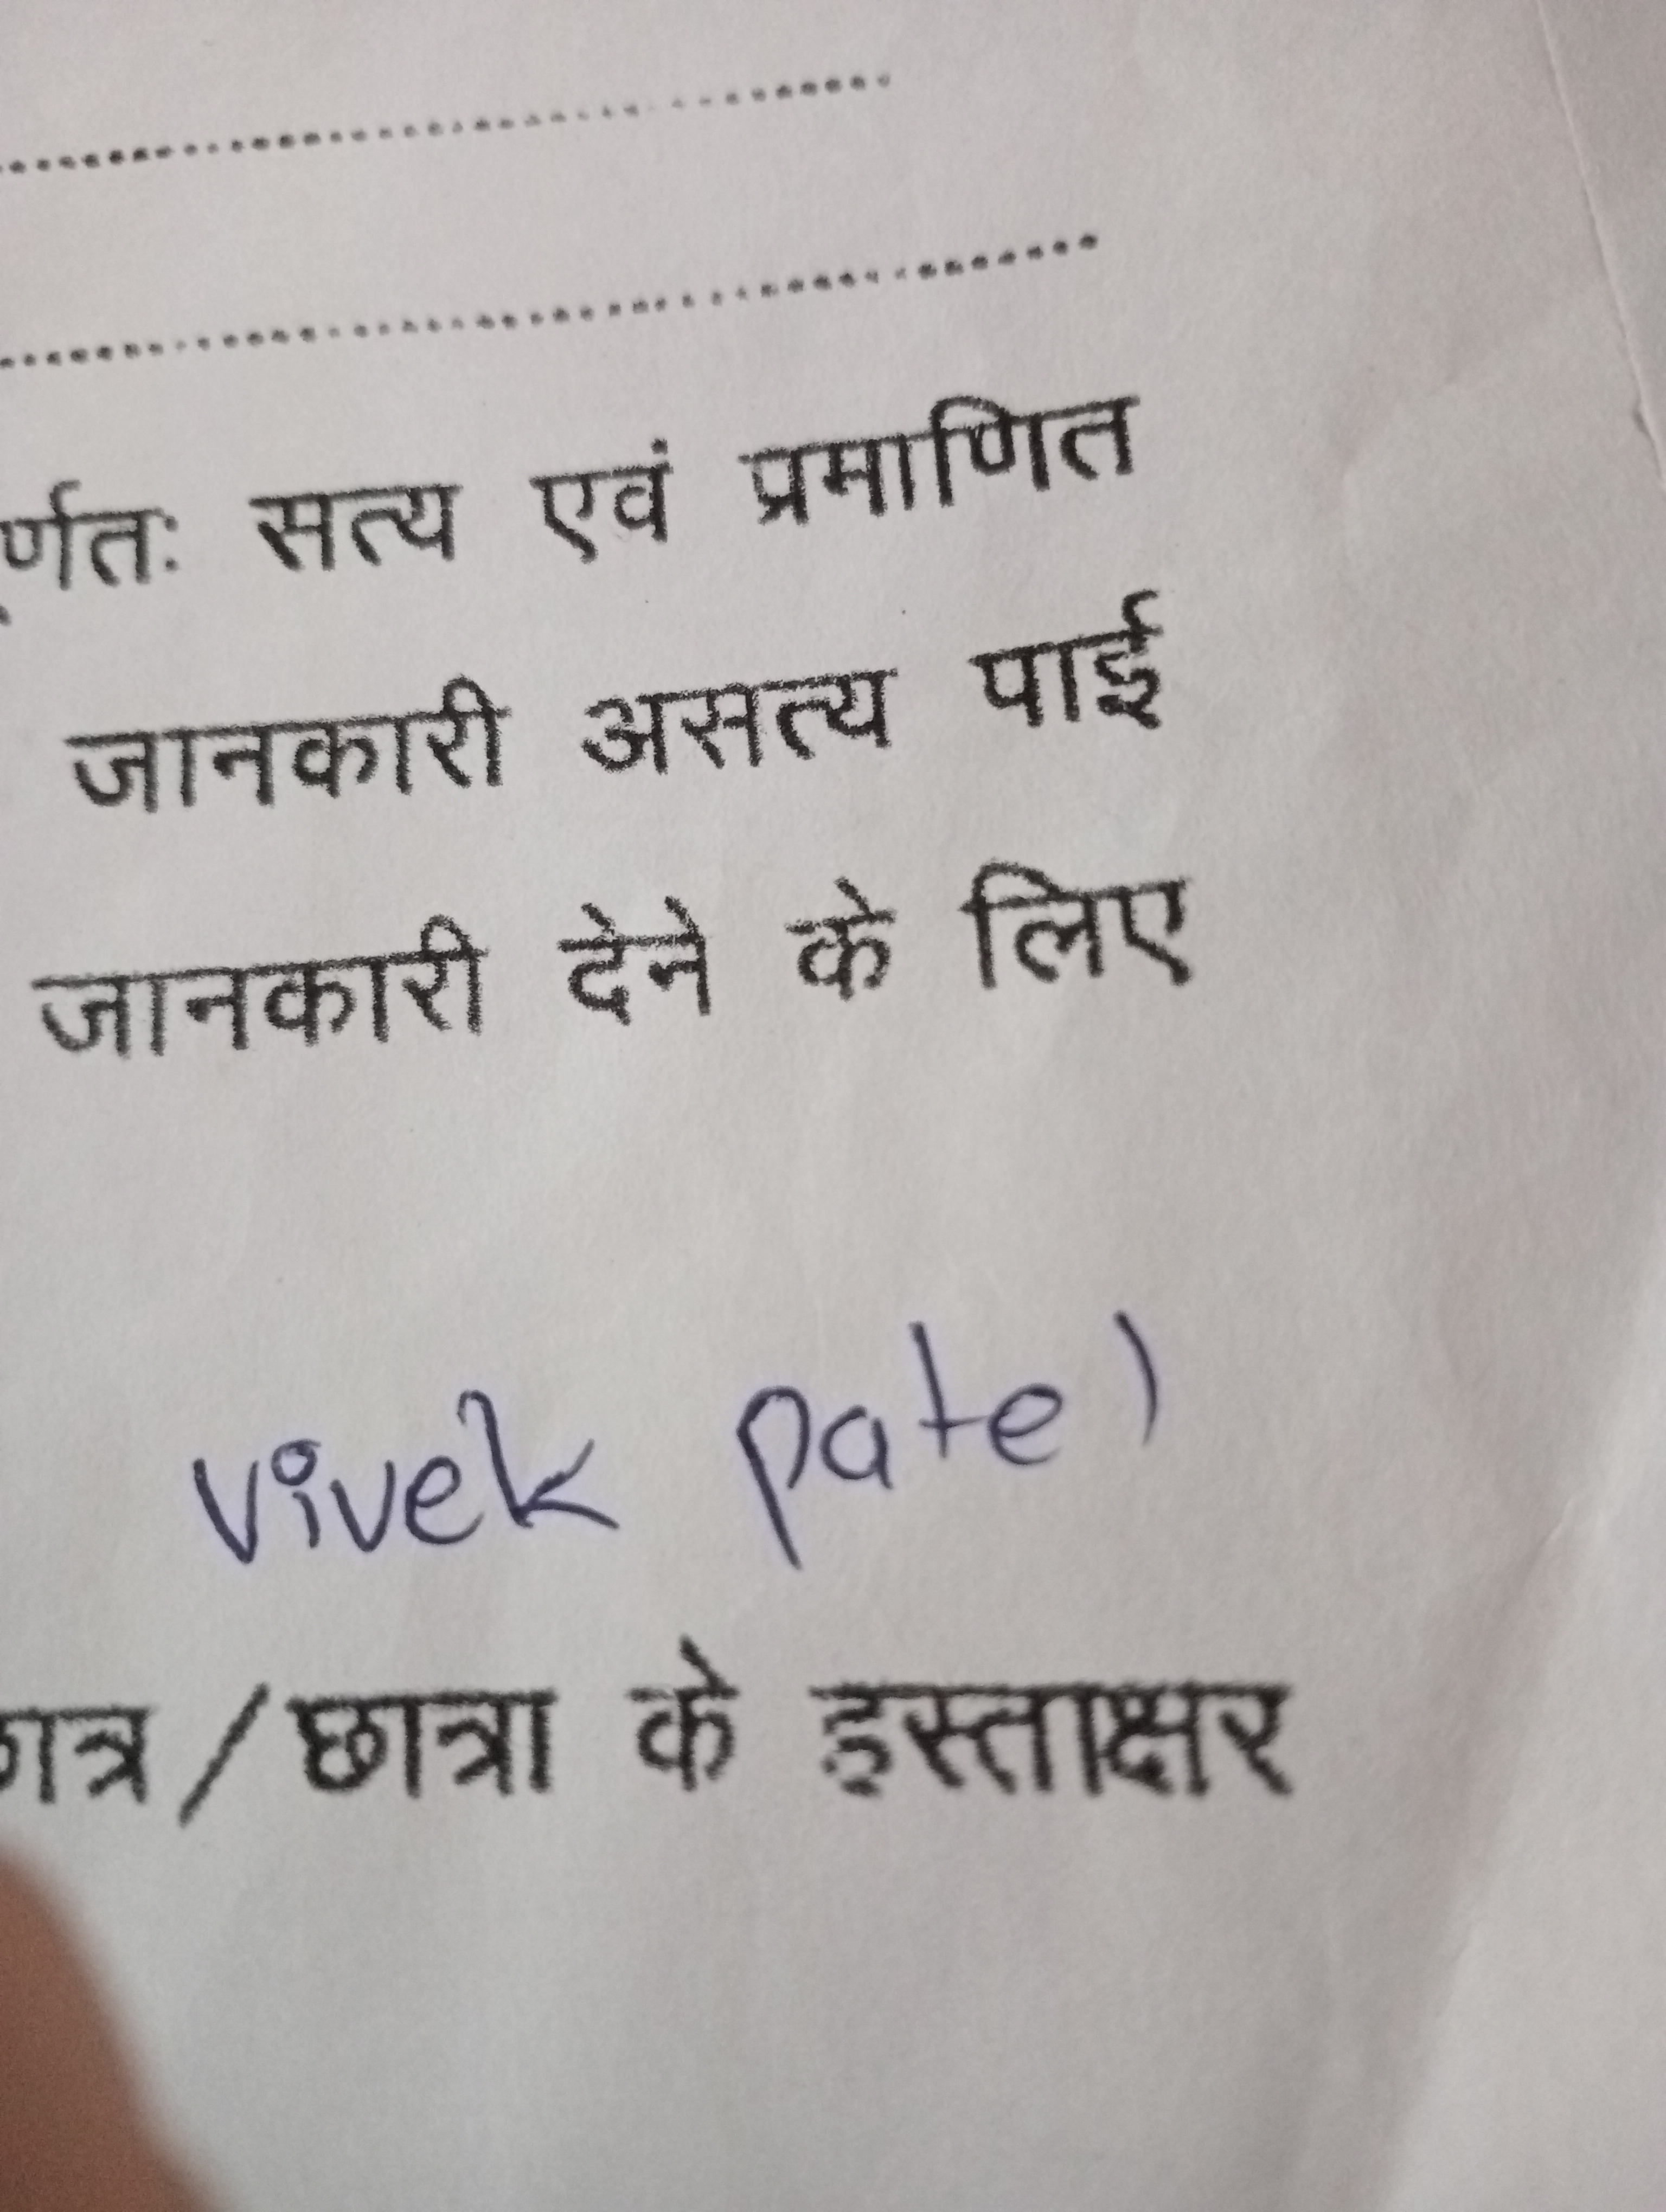 सत्य एवं प्रमाणित
जानकारी असत्य पाई
जानकारी देने के लिए
vivek patel
/छात्रा के हस्ताक्षर